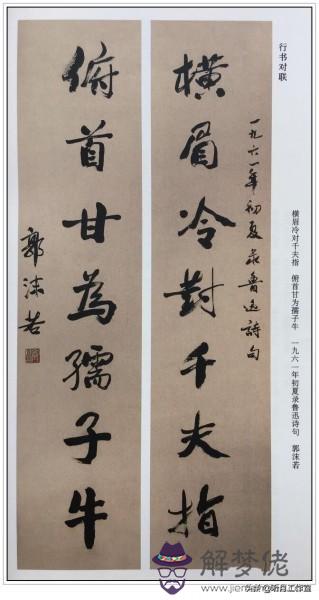 行书对联
横眉冷对千夫指　俯首甘为孺子牛　一九六一年初夏录鲁迅诗句　郭沫若
一九六一年初夏录鲁迅诗句
橫眉冷對千夫指
俯首甘為孺子牛
郭沫若
解梦佬
www.jien